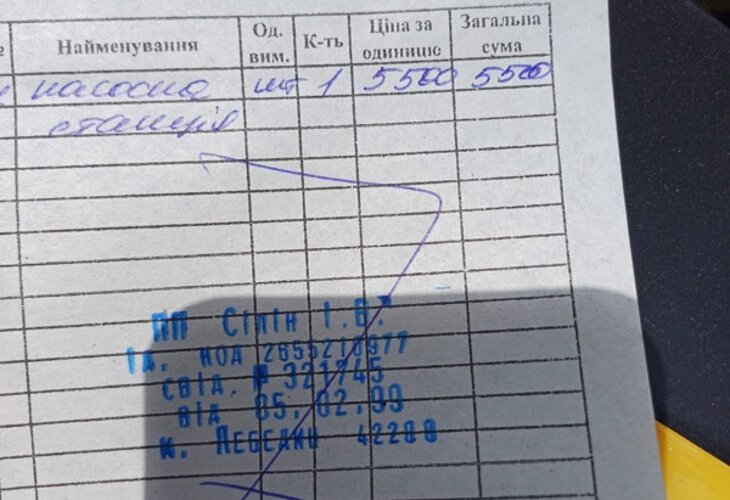 № Найменування Од. вим. К-ть Ціна за одиницю Загальна сума
насосна шт 1 5500 5500
станція
ПП Сілін І.В.
Ід. код 2655210977
Свід. № 321745
від 05.02.99
м. Лебедин 42200